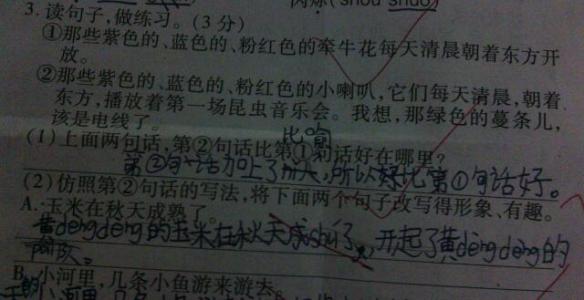 肉烁(shòu shuò)
3. 读句子,做练习。(3 分)
①那些紫色的、蓝色的、粉红色的牵牛花每天清晨朝着东方开
放。
②那些紫色的、蓝色的、粉红色的小喇叭,它们每天清晨,朝着
东方,播放着第一场昆虫音乐会。我想,那绿色的蔓条儿,
该是电线了。
比喻
(1)上面两句话,第②句话比第①句话好在哪里?
第②句话加上了 所以好比第①句话好。
(2)仿照第②句话的写法,将下面两个句子改写得形象、有趣。
A. 玉米在秋天成熟了。
黄dēngdēng的玉米在秋天成shú了, 开起了黄dēngdēng的
B. 小河里,几条小鱼游来游去。